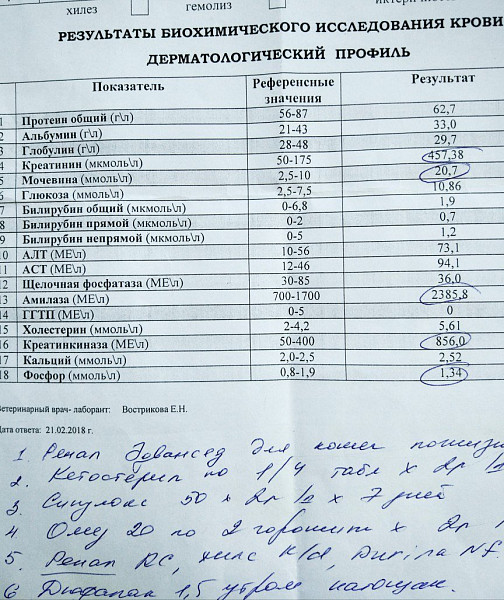 хилез гемолиз
РЕЗУЛЬТАТЫ БИОХИМИЧЕСКОГО ИССЛЕДОВАНИЯ КРОВИ
ДЕРМАТОЛОГИЧЕСКИЙ ПРОФИЛЬ
Показатель Референсные значения Результат
1 Протеин общий (г\л) 56-87 62,7
2 Альбумин (г\л) 21-43 33,0
3 Глобулин (г\л) 28-48 29,7
4 Креатинин (мкмоль\л) 50-175 457,38
5 Мочевина (ммоль\л) 2,5-10 20,7
6 Глюкоза (ммоль\л) 2,5-7,5 10,86
7 Билирубин общий (мкмоль\л) 0-6,8 1,9
8 Билирубин прямой (мкмоль\л) 0-2 0,7
9 Билирубин непрямой (мкмоль\л) 0-5 1,2
10 АЛТ (МЕ\л) 10-56 73,1
11 АСТ (МЕ\л) 12-46 94,1
12 Щелочная фосфатаза (МЕ\л) 30-85 36,0
13 Амилаза (МЕ\л) 700-1700 2385,8
14 ГГТП (МЕ\л) 0-5 0
15 Холестерин (ммоль\л) 2-4,2 5,61
16 Креатинкиназа (МЕ\л) 50-400 856,0
17 Кальций (ммоль\л) 2,0-2,5 2,52
18 Фосфор (ммоль\л) 0,8-1,9 1,34
Ветеринарный врач- лаборант: Вострикова Е.Н.
Дата ответа: 21.02.2018 г.
1. Ренал Эдвансед для кошек
2. Кетостерил по 1/4 табл х 2р
3. Синулокс 50 х 2р х 7 дней
4 Омез 20 по 2 х 2р
5. Ренал RC, хилс k/d, Purina NF.
6 1,5 утром натощак.